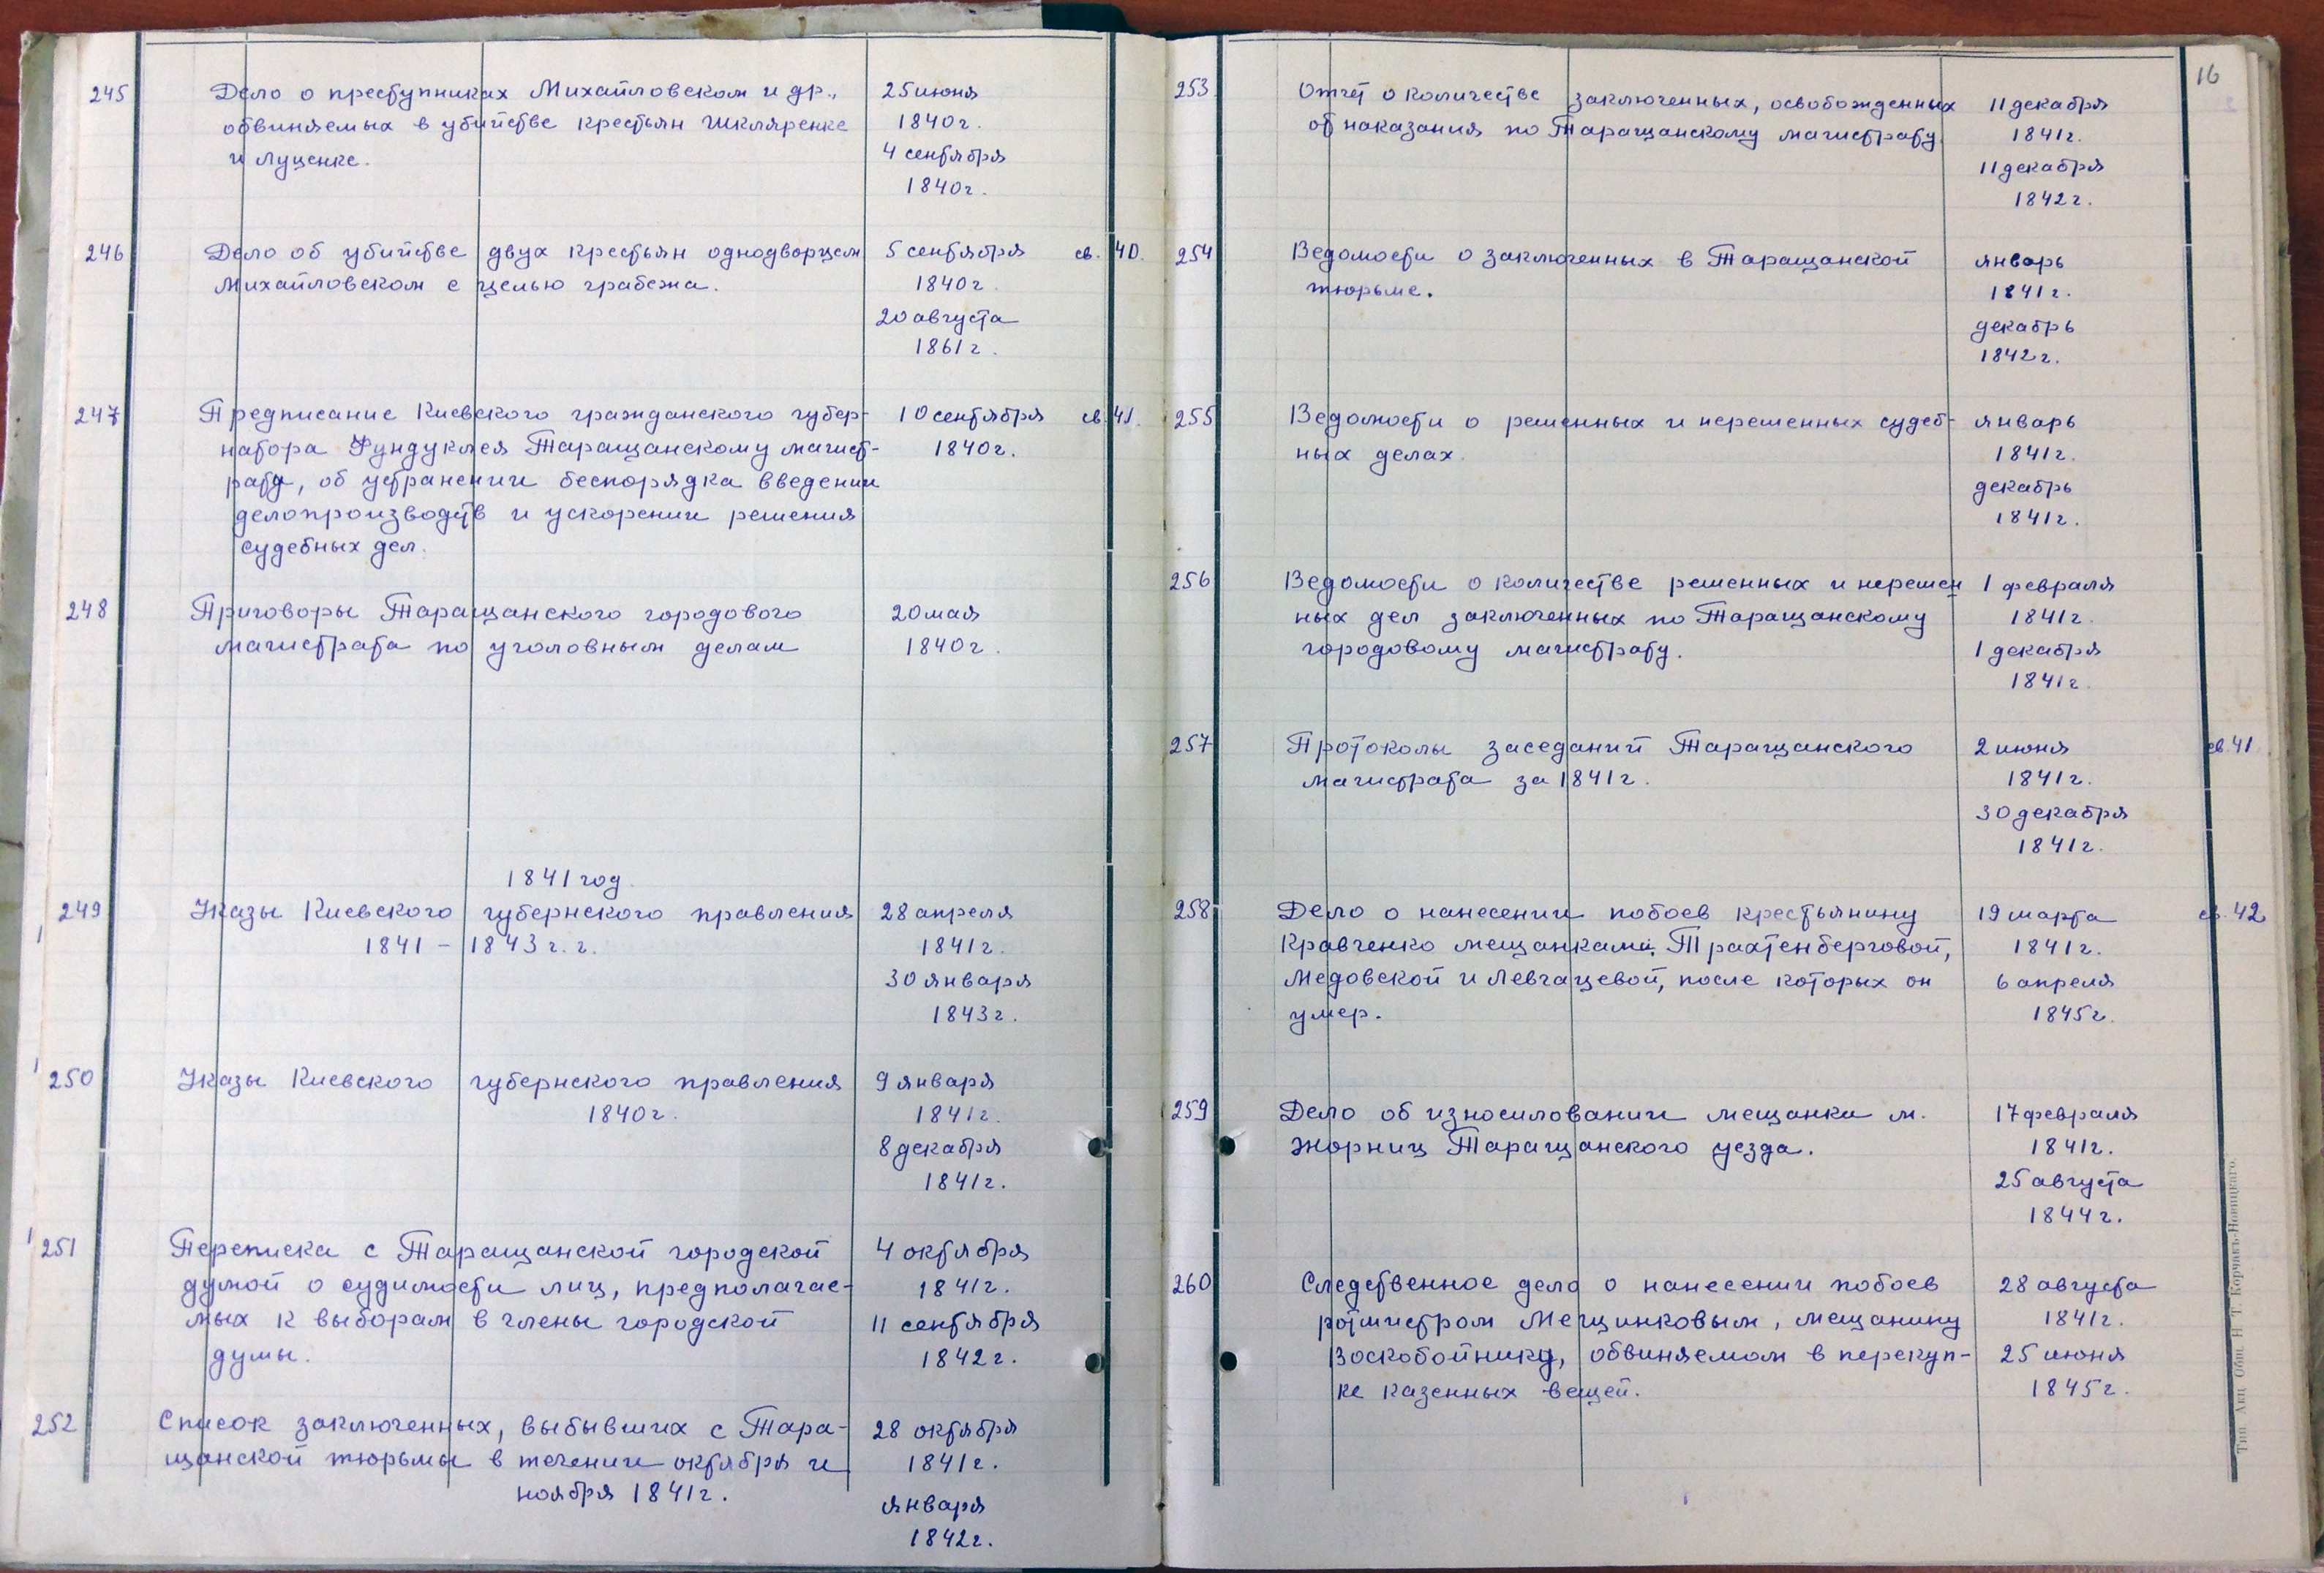 245 Дело о преступниках Михайловском и др., 25 июня
обвиняемых в убийстве крестьян Шкляренке 1840 г.
и Луценке. 4 сентября
1840 г.
246 Дело об убийстве двух крестьян однодворцем 5 сентября св. 40.
Михайловском с целью грабежа. 1840 г.
20 августа
1861 г.
247 Предписание Киевского гражданского губер- 10 сентября св. 41.
натора Фундуклея Таращанскому магист- 1840 г.
рату, об устранении беспорядка в ведении
делопроизводств и ускорении решения
судебных дел.
248 Приговоры Таращанского городового 20 мая
магистрата по уголовным делам 1840 г.
1841 год.
249 Указы Киевского губернского правления 28 апреля
1841 - 1843 г. г. 1841 г.
30 января
1843 г.
250 Указы Киевского губернского правления 9 января
1840 г. 1841 г.
8 декабря
1841 г.
251 Переписка с Таращанской городской 4 октября
думой о судимости лиц, предполагае- 1841 г.
мых к выборам в члены городской 11 сентября
думы. 1842 г.
252 Список заключенных, выбывших с Тара- 28 октября
щанской тюрьмы в течении октября и 1841 г.
ноября 1841 г. января
1842 г.
16
253 Отчет о количестве заключенных, освобожденных 11 декабря
от наказания по Таращанскому магистрату. 1841 г.
11 декабря
1842 г.
254 Ведомости о заключенных в Таращанской январь
тюрьме. 1841 г.
декабрь
1842 г.
255 Ведомости о решенных и нерешенных судеб- январь
ных делах. 1841 г.
декабрь
1841 г.
256 Ведомости о количестве решенных и нерешен 1 февраля
ных дел заключенных по Таращанскому 1841 г.
городовому магистрату. 1 декабря
1841 г.
257 Протоколы заседаний Таращанского 2 июня св. 41
магистрата за 1841 г. 1841 г.
30 декабря
1841 г.
258 Дело о нанесении побоев крестьянину 19 марта св. 42
Кравченко мещанками: Трахтенберговой, 1841 г.
Медовской и Левчацевой, после которых он 6 апреля
умер. 1845 г.
259 Дело об износиловании мещанки м. 17 февраля
Жорниц Таращанского уезда. 1841 г.
25 августа
1844 г.
260 Следственное дело о нанесении побоев 28 августа
ротмистром Мещинковым, мещанину 1841 г.
Воскобойнику, обвиняемом в перекуп- 25 июня
ке казенных вещей. 1845 г.
Тип. Акц. Общ. Н. Т. Корчакъ-Новицкаго.